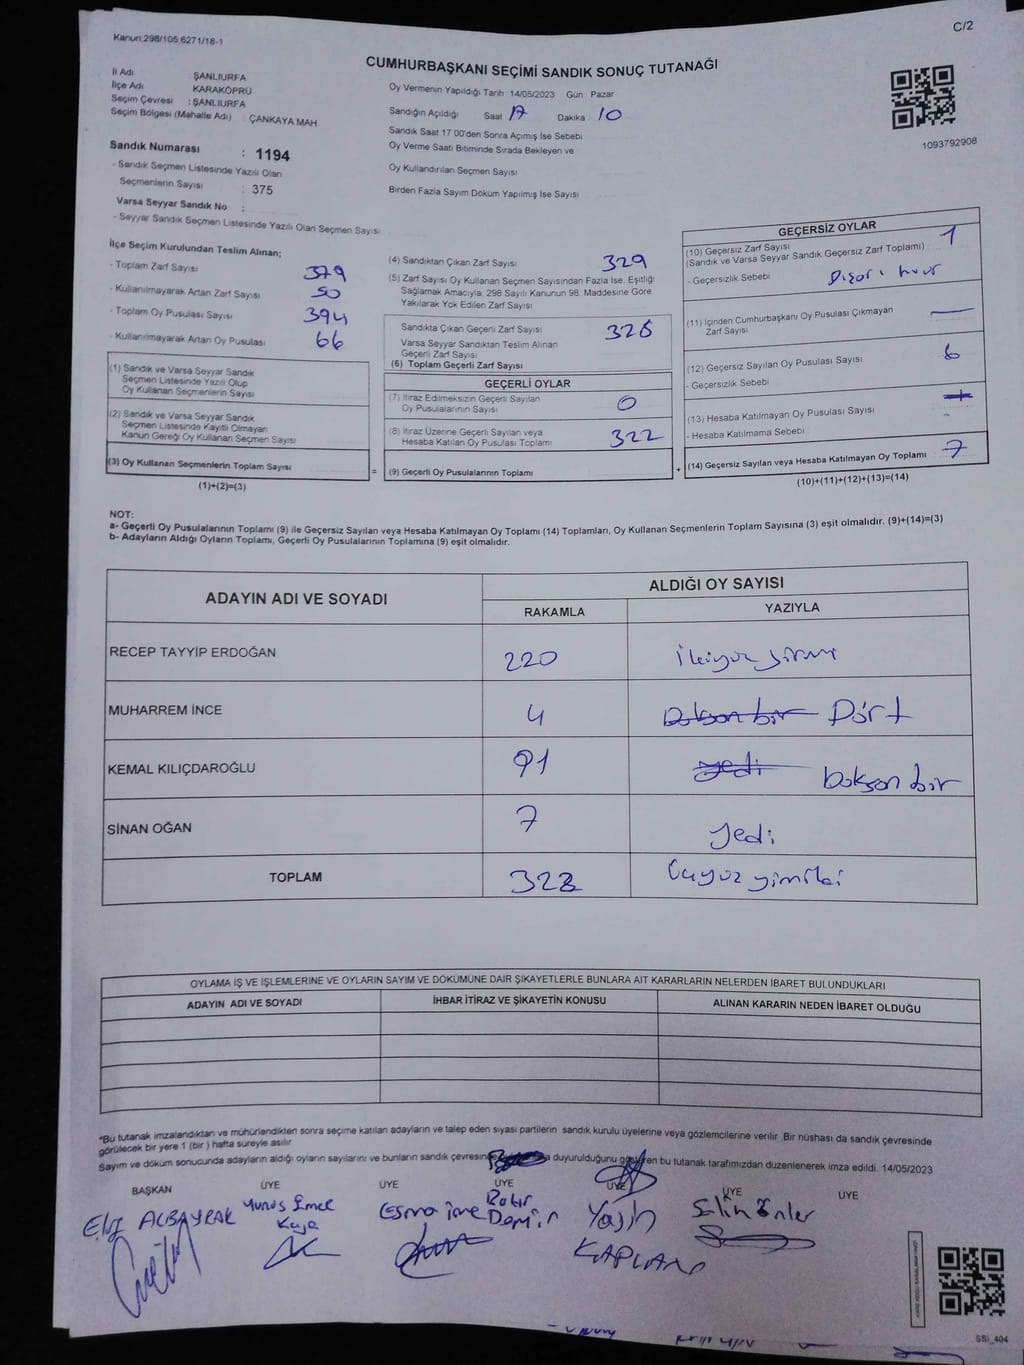 C/2
Kanun:298/105;6271/18-1
CUMHURBAŞKANI SEÇİMİ SANDIK SONUÇ TUTANAĞI
İl Adı : ŞANLIURFA
İlçe Adı KARAKÖPRÜ
Seçim Çevresi : ŞANLIURFA
Seçim Bölgesi (Mahalle Adı) : ÇANKAYA MAH.
Sandık Numarası : 1194
- Sandık Seçmen Listesinde Yazılı Olan
Seçmenlerin Sayısı : 375
Varsa Seyyar Sandık No :
- Seyyar Sandık Seçmen Listesinde Yazılı Olan Seçmen Sayısı
Oy Vermenin Yapıldığı Tarih 14/05/2023 Gün : Pazar
Sandığın Açıldığı Saat 17 Dakika : 10
Sandık Saat 17 00'den Sonra Açımış İse Sebebi
Oy Verme Saati Bitiminde Sırada Bekleyen ve
Oy Kullandırılan Seçmen Sayısı
Birden Fazla Sayım Döküm Yapılmış İse Sayısı
1093792908
İlçe Seçim Kurulundan Teslim Alınan;
- Toplam Zarf Sayısı 379
- Kullanılmayarak Artan Zarf Sayısı 50
- Toplam Oy Pusulası Sayısı 394
- Kullanılmayarak Artan Oy Pusulası 66
(1) Sandık ve Varsa Seyyar Sandık
Seçmen Listesinde Yazılı Olup
Oy Kullanan Seçmenlerin Sayısı
(2) Sandık ve Varsa Seyyar Sandık
Seçmen Listesinde Kayıtlı Olmayan
Kanun Gereği Oy Kullanan Seçmen Sayısı
(3) Oy Kullanan Seçmenlerin Toplam Sayısı
(1)+(2)=(3)
(4) Sandıktan Çıkan Zarf Sayısı 329
(5) Zarf Sayısı Oy Kullanan Seçmen Sayısından Fazla İse, Eşitliği
Sağlamak Amacıyla, 298 Sayılı Kanunun 98. Maddesine Göre
Yakılarak Yok Edilen Zarf Sayısı
Sandıkta Çıkan Geçerli Zarf Sayısı 328
Varsa Seyyar Sandıktan Teslim Alınan
Geçerli Zarf Sayısı
(6) Toplam Geçerli Zarf Sayısı
GEÇERLİ OYLAR
(7) İtiraz Edilmeksizin Geçerli Sayılan
Oy Pusulalarının Sayısı 0
(8) İtiraz Üzerine Geçerli Sayılan veya
Hesaba Katılan Oy Pusulası Toplamı 322
= (9) Geçerli Oy Pusulalarının Toplamı
GEÇERSİZ OYLAR
(10) Geçersiz Zarf Sayısı 1
(Sandık ve Varsa Seyyar Sandık Geçersiz Zarf Toplamı)
- Geçersizlik Sebebi
(11) İçinden Cumhurbaşkanı Oy Pusulası Çıkmayan
Zarf Sayısı —
(12) Geçersiz Sayılan Oy Pusulası Sayısı 6
- Geçersizlik Sebebi
(13) Hesaba Katılmayan Oy Pusulası Sayısı
- Hesaba Katılmama Sebebi
+ (14) Geçersiz Sayılan veya Hesaba Katılmayan Oy Toplamı 7
(10)+(11)+(12)+(13)=(14)
NOT:
a- Geçerli Oy Pusulalarının Toplamı (9) ile Geçersiz Sayılan veya Hesaba Katılmayan Oy Toplamı (14) Toplamları, Oy Kullanan Seçmenlerin Toplam Sayısına (3) eşit olmalıdır. (9)+(14)=(3)
b- Adayların Aldığı Oyların Toplamı, Geçerli Oy Pusulalarının Toplamına (9) eşit olmalıdır.
ADAYIN ADI VE SOYADI
ALDIĞI OY SAYISI
RAKAMLA YAZIYLA
RECEP TAYYİP ERDOĞAN 220 ikiyüz yirmi
MUHARREM İNCE 4 Doksan bir Dört
KEMAL KILIÇDAROĞLU 91 yedi Doksan bir
SİNAN OĞAN 7 yedi
TOPLAM 322
OYLAMA İŞ VE İŞLEMLERİNE VE OYLARIN SAYIM VE DÖKÜMÜNE DAİR ŞİKAYETLERLE BUNLARA AİT KARARLARIN NELERDEN İBARET BULUNDUKLARI
ADAYIN ADI VE SOYADI İHBAR İTİRAZ VE ŞİKAYETİN KONUSU ALINAN KARARIN NEDEN İBARET OLDUĞU
*Bu tutanak imzalandıktan ve mühürlendikten sonra seçime katılan adayların ve talep eden siyasi partilerin sandık kurulu üyelerine veya gözlemcilerine verilir. Bir nüshası da sandık çevresinde
görülecek bir yere 1 (bir ) hafta süreyle asılır.
Sayım ve döküm sonucunda adayların aldığı oyların sayılarını ve bunların sandık çevresinde duyurulduğunu gösteren bu tutanak tarafımızdan düzenlenerek imza edildi. 14/05/2023
BAŞKAN ÜYE ÜYE ÜYE ÜYE ÜYE ÜYE
Elif ALBAYRAK Yunus Emre Kaya Esma ince Demir Yasin KAPLAN Selin Önler
SSI_404